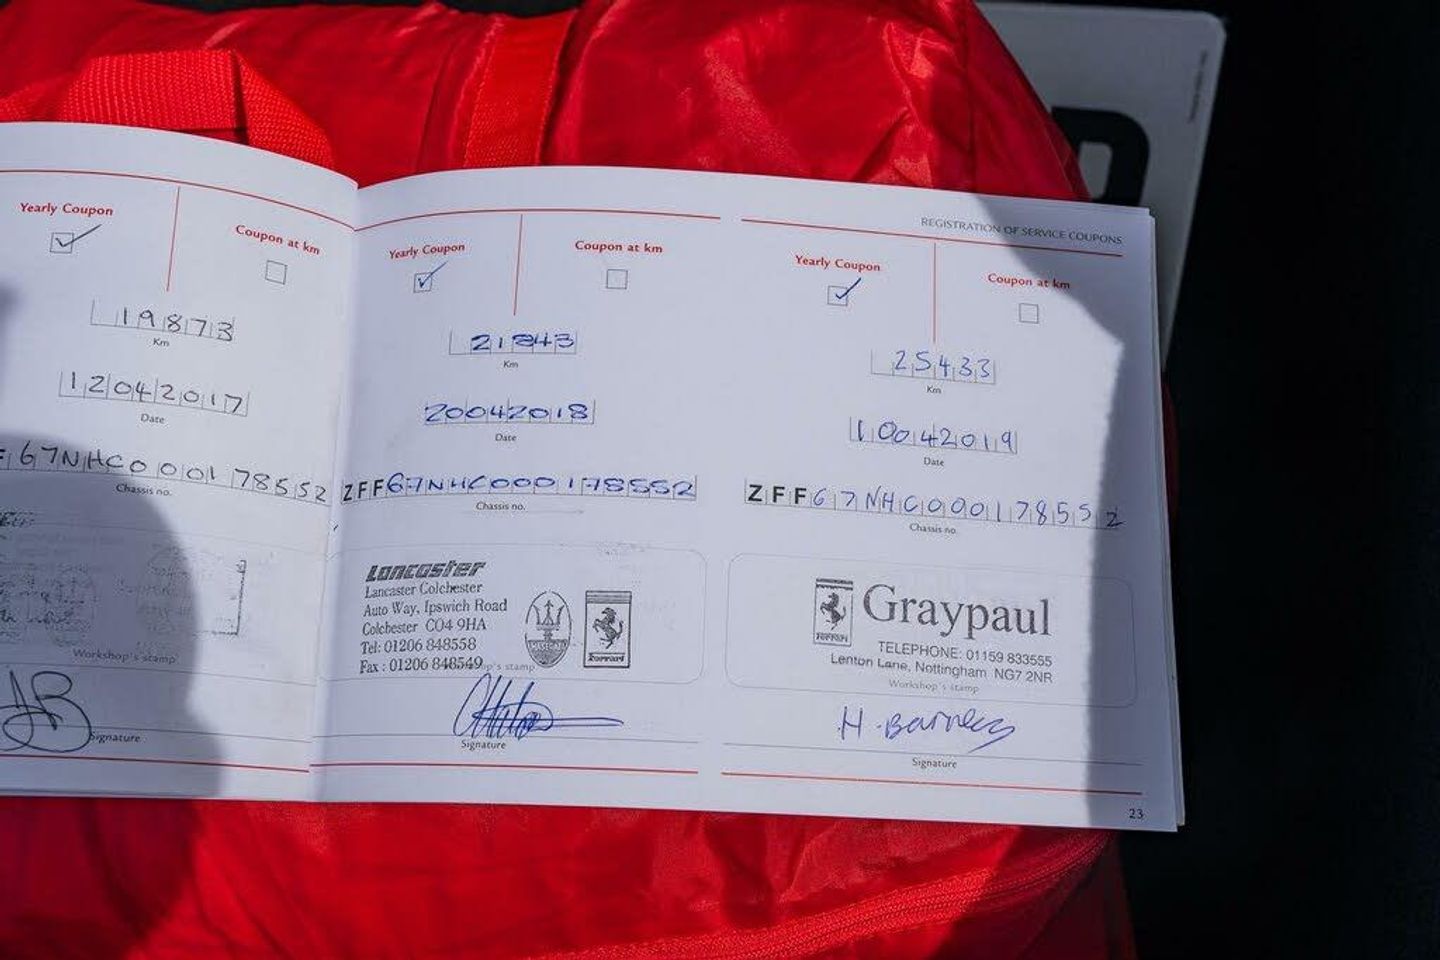 Yearly Coupon
Coupon at km
19873
Km
12042017
Date
67NHC000178552
Chassis no.
Workshop's stamp
Signature
Yearly Coupon
Coupon at km
21843
Km
20042018
Date
ZFF67NHC000178552
Chassis no.
Lancaster
Lancaster Colchester
Auto Way, Ipswich Road
Colchester CO4 9HA
Tel: 01206 848558
Fax : 01206 848549
stamp
MASERATI
Ferrari
Signature
REGISTRATION OF SERVICE COUPONS
Yearly Coupon
Coupon at km
25433
Km
10042019
Date
ZFF67NHC000178552
Chassis no.
Ferrari
Graypaul
TELEPHONE: 01159 833555
Lenton Lane, Nottingham NG7 2NR
Workshop's stamp
H. Barnes
Signature
23